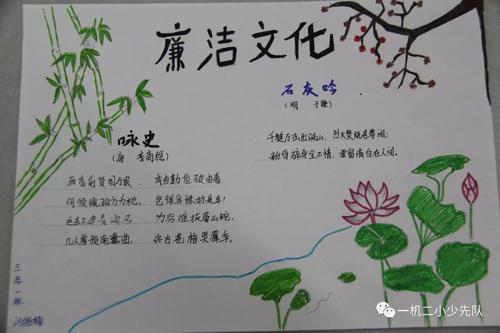 廉洁文化
石灰吟
(明 于谦)
千锤万凿出深山，烈火焚烧若等闲。
粉骨碎身全不惜，要留清白在人间。
咏史
(唐 李商隐)
历览前贤国与家，成由勤俭破由奢。
何须琥珀方为枕，岂得真珠始是车？
运去不逢青海马，力穷难拔蜀山蛇。
几人曾预南薰曲，终古苍梧哭翠华。
三年一班
一机二小少先队